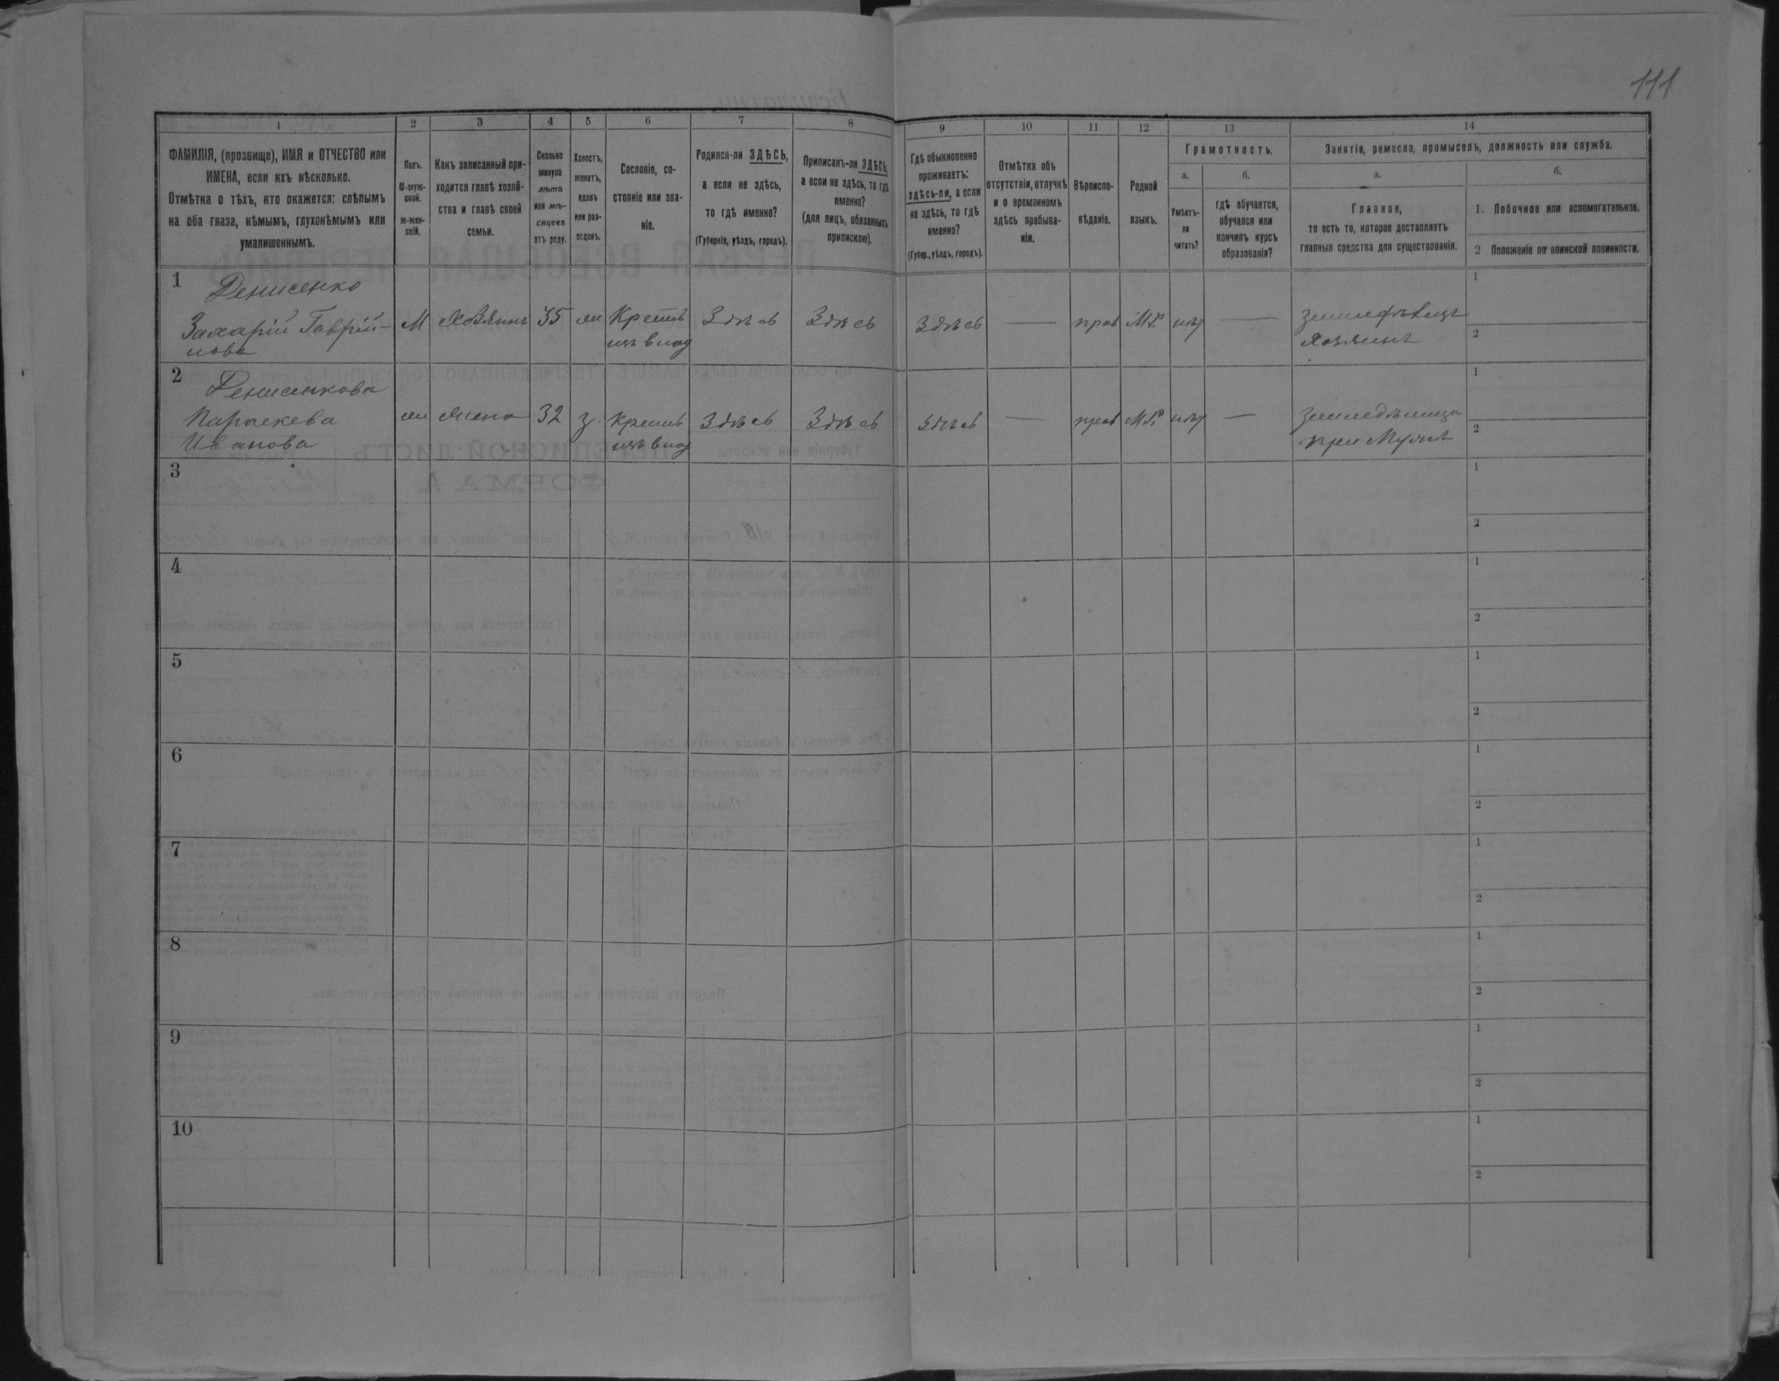 111
1
2
3
4
5
6
7
8
9
10
11
12
13
14
ФАМИЛІЯ, (прозвище), ИМЯ и ОТЧЕСТВО или
ИМЕНА, если ихъ нѣсколько.
Отмѣтка о тѣхъ, кто окажется: слѣпымъ
на оба глаза, нѣмымъ, глухонѣмымъ или
умалишеннымъ.
Полъ.
М-муж-
ской.
ж-жен-
скій.
Какъ записанный при-
ходится главѣ хозяй-
ства и главѣ своей
семьи.
Сколько
минуло
лѣтъ
или мѣ-
сяцевъ
отъ роду.
Холостъ,
женатъ,
вдовъ
или раз-
веденъ.
Сословіе, со-
стояніе или зва-
ніе.
Родился-ли ЗДѢСЬ,
а если не здѣсь,
то гдѣ именно?
(Губернія, уѣздъ, городъ).
Приписанъ-ли ЗДѢСЬ,
а если не здѣсь, то гдѣ
именно?
(для лицъ, обязанныхъ
припискою).
Гдѣ обыкновенно
проживаетъ:
здѣсь-ли, а если
не здѣсь, то гдѣ
именно?
(Губер., уѣздъ, городъ).
Отмѣтка объ
отсутствіи, отлучкѣ
и о временномъ
здѣсь пребыва-
ніи.
Вѣроиспо-
вѣданіе.
Родной
языкъ.
Грамотность.
а.
Умѣетъ-
ли
читать?
б.
гдѣ обучается,
обучался или
кончилъ курсъ
образованія?
Занятіе, ремесло, промыселъ, должность или служба.
а.
Главное,
то есть то, которое доставляетъ
главныя средства для существованія.
б.
1. Побочное или вспомогательное.
2 Положеніе по воинской повинности.
1
Денисенко
Захарій Гаврій-
лова
М Хозяинъ 35 Крестъ Здѣсь Здѣсь Здѣсь — прав М.Р. нѣт — 
Хозяинъ
1
2
2
Денисенкова
Параскева
Иванова
жена 32 з. Здѣсь Здѣсь Здѣсь — прав М.Р. нѣт —
при Мужѣ
1
2
3
1
2
4
1
2
5
1
2
6
1
2
7
1
2
8
1
2
9
1
2
10
1
2